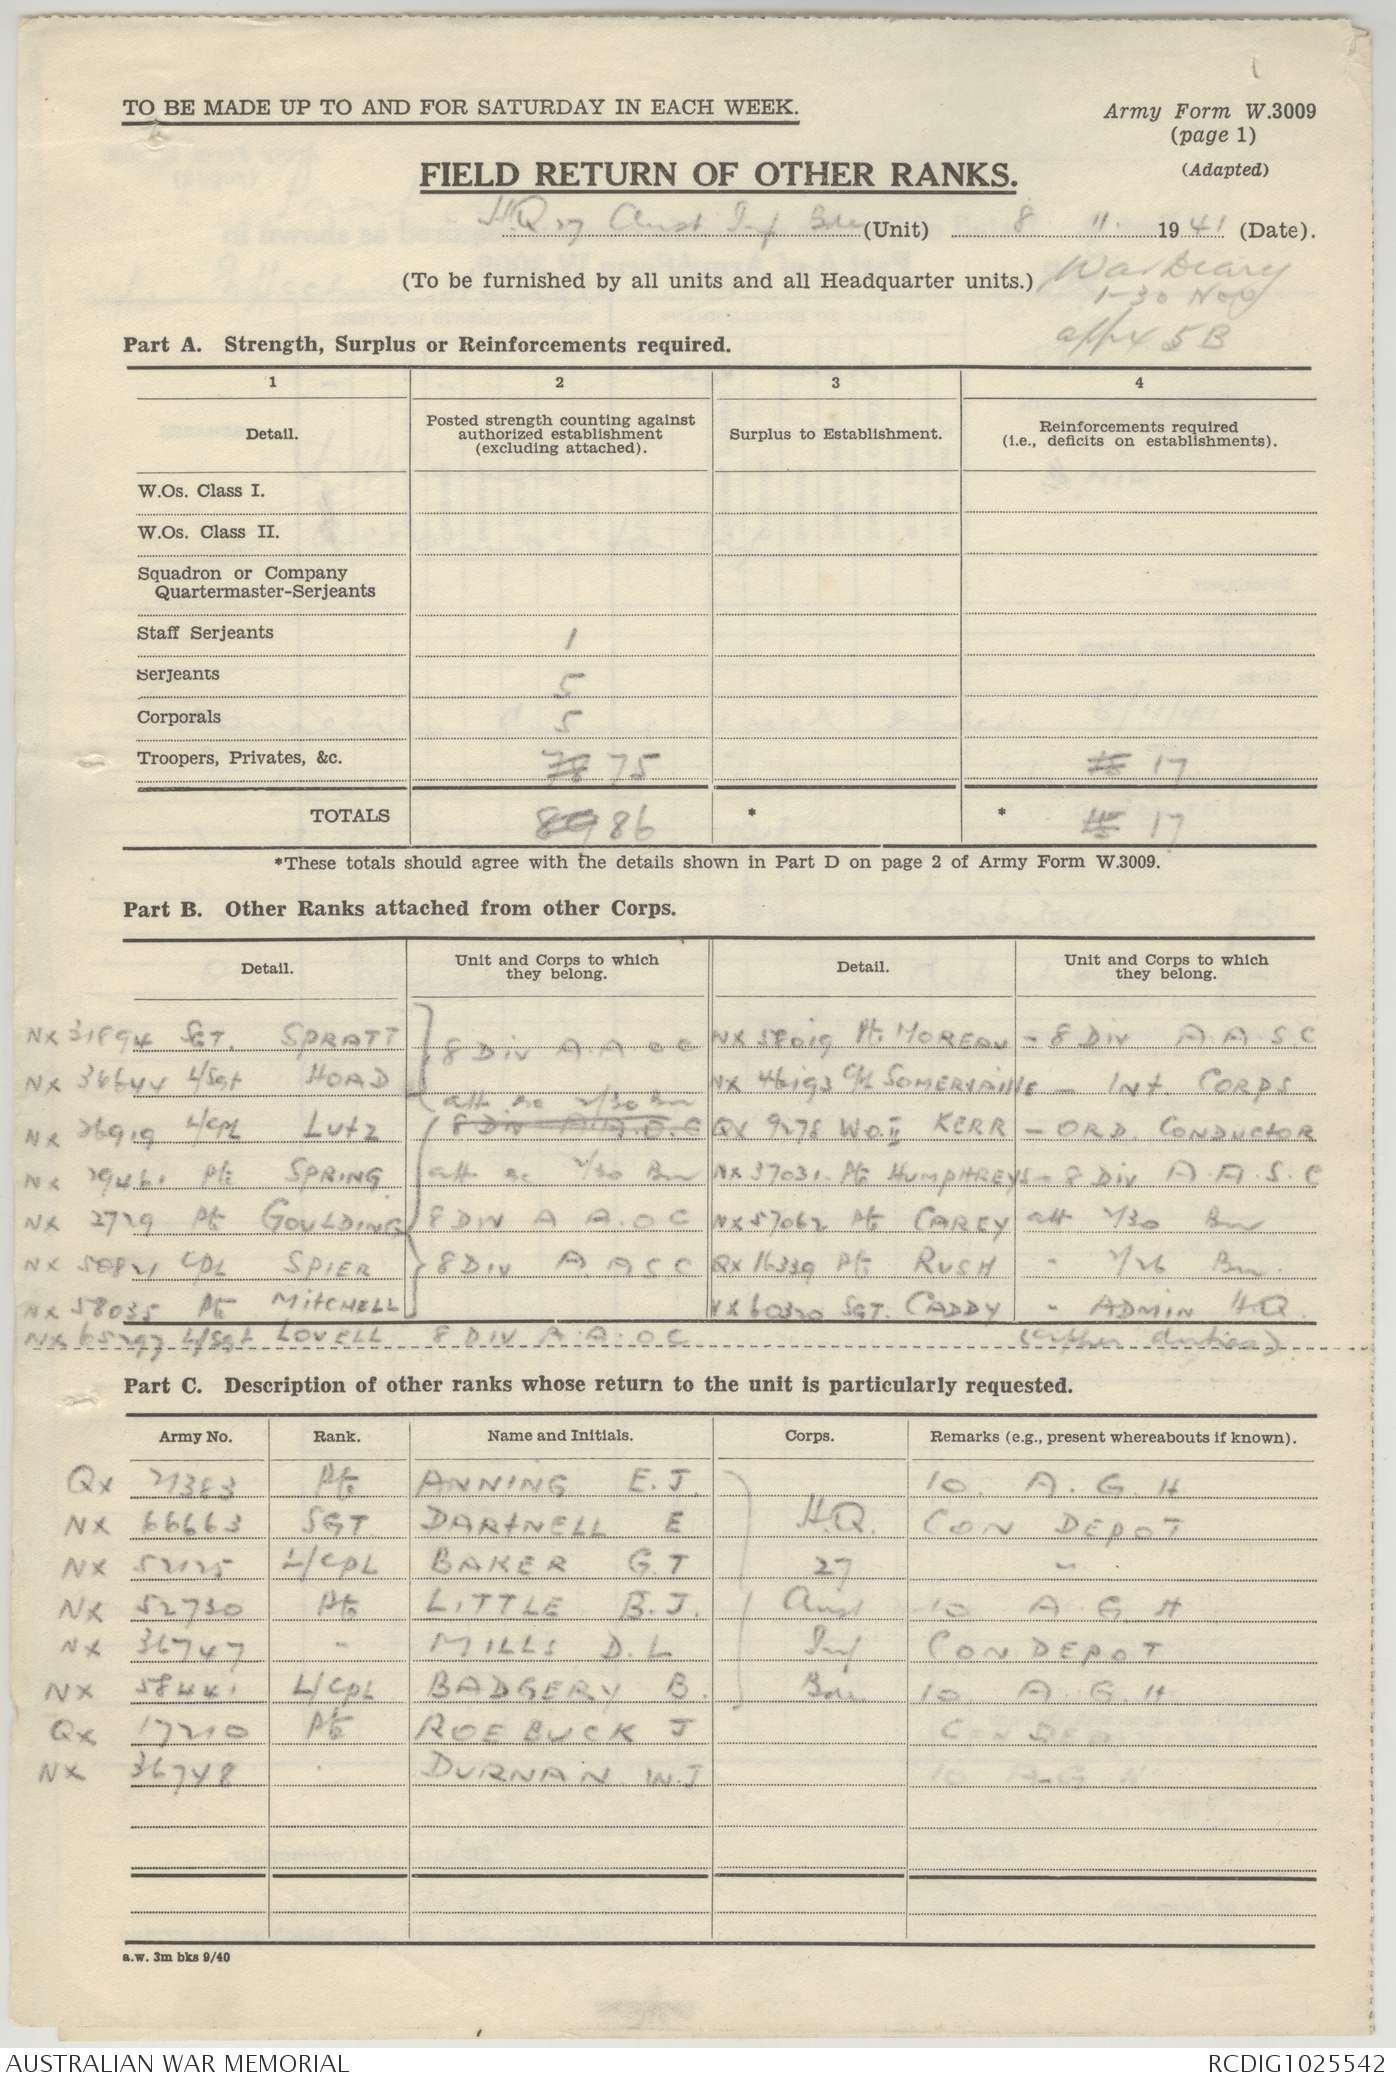 TO BE MADE UP TO AND FOR SATURDAY IN EACH WEEK.
Army Form W.3009
(page 1)
(Adapted)
FIELD RETURN OF OTHER RANKS.
H.Q 27 Aust Inf Bde (Unit) 8 11. 1941 (Date).
(To be furnished by all units and all Headquarter units.)
War Diary
1-30 Nov
appx 5B
Part A. Strength, Surplus or Reinforcements required.
1 2 3 4
Detail. Posted strength counting against authorized establishment (excluding attached). Surplus to Establishment. Reinforcements required (i.e., deficits on establishments).
W.Os. Class I.
W.Os. Class II.
Squadron or Company
Quartermaster-Serjeants
Staff Serjeants 1
Serjeants 5
Corporals 5
Troopers, Privates, &c. 78 75 17
TOTALS 89 86 * * 17
*These totals should agree with the details shown in Part D on page 2 of Army Form W.3009.
Part B. Other Ranks attached from other Corps.
Detail. Unit and Corps to which they belong. Detail. Unit and Corps to which they belong.
NX 31894 SGT. SPRATT 8 DIV A.A O C NX 58019 Pte MOREAU - 8 DIV A.A.S.C
NX 36644 L/Sgt HOAD att 2/30 Bn NX 46193 Cpl SOMERVAILLE - INT. CORPS
NX 26919 L/CPL LUTZ 8 DIV A A.O.C QX 9278 WO.II KERR - ORD. CONDUCTOR
NX 29461 Pte SPRING att 2/30 Bn NX 37031. Pte HUMPHREYS - 8 DIV A.A.S.C
NX 2729 Pte GOULDING 8 DIV A A.O C NX 57062 Pte CAREY att 2/30 Bn
NX 50821 CPL SPIER 8 DIV A.A S C QX 16339 Pte RUSH " 2/26 Bn.
NX 58035 Pte MITCHELL VX 60320 SGT. CADDY " ADMIN H.Q.
NX 65297 L/Sgt LOVELL 8 DIV A.A.O C (other duties)
Part C. Description of other ranks whose return to the unit is particularly requested.
Army No. Rank. Name and Initials. Corps. Remarks (e.g., present whereabouts if known).
QX 21383 Pte ANNING E.J. 10. A.G.H
NX 66663 SGT DARTNELL E H.Q. CON DEPOT
NX 52125 L/CPL BAKER G.T 27 "
NX 52730 Pte LITTLE B.J. Aust 10 A G H
NX 36747 " MILLS D.L Inf CON DEPOT
NX 58441 L/CPL BADGERY B. Bde 10 A.G.H
QX 17210 Pte ROEBUCK J CON DEP
NX 36748 " DURNAN W.J 10 A.G H
a.w. 3m bks 9/40
AUSTRALIAN WAR MEMORIAL
RCDIG1025542